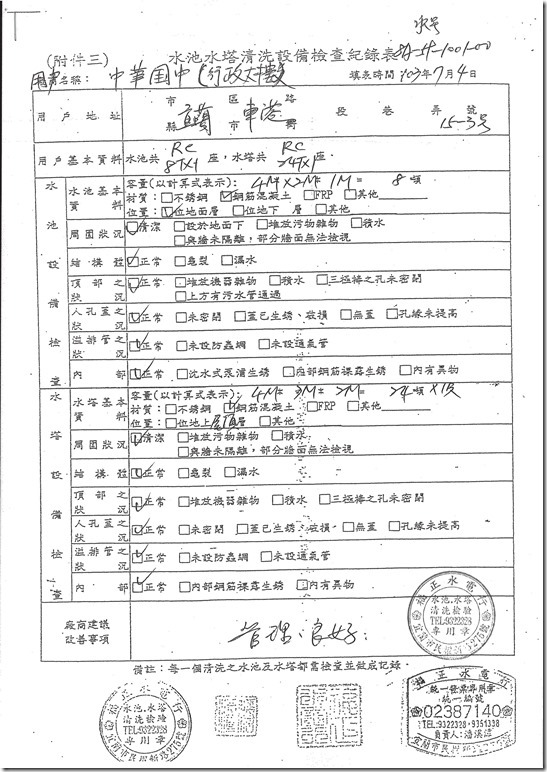 水號
(附件三) 水池水塔清洗設備檢查紀錄表 8A-59-1001-00
用戶名稱: 中華国中(行政大樓) 填表時間:103年7月4日
用戶地址 市縣 區鄉市 東港 路街 段 巷 弄 號 15-3号
用戶基本資料 水池共 RC 8T×1 座,水塔共 RC 24T×1 座。
水池設備檢查
水池基本資料 容量(以計算式表示): 4M×2M×1M= 8噸
材質:□不銹鋼 ☑鋼筋混凝土 □FRP □其他
位置:☑位地面層 □位地下 層 □其他
周圍狀況 ☑清潔 □設於地面下 □堆放污物雜物 □積水
□與牆未隔離,部分牆面無法檢視
結構體 ☑正常 □龜裂 □漏水
頂部之狀況 ☑正常 □堆放機器雜物 □積水 □三極棒之孔未密閉
□上方有污水管通過
人孔蓋之狀況 ☑正常 □未密閉 □蓋已生銹、破損 □無蓋 □孔緣未提高
溢排管之狀況 ☑正常 □未設防蟲網 □未設通氣管
內部 ☑正常 □沈水式泵浦生銹 □內部鋼筋裸露生銹 □內有異物
水塔設備檢查
水塔基本資料 容量(以計算式表示): 4M× 3M× 2M= 24噸×1座
材質:□不銹鋼 ☑鋼筋混凝土 □FRP □其他
位置:□位地上屋頂層 □其他
周圍狀況 ☑清潔 □堆放污物雜物 □積水
□與牆未隔離,部分牆面無法檢視
結構體 ☑正常 □龜裂 □漏水
頂部之狀況 ☑正常 □堆放機器雜物 □積水 □三極棒之孔未密閉
人孔蓋之狀況 ☑正常 □未密閉 □蓋已生銹、破損 □無蓋 □孔緣未提高
溢排管之狀況 ☑正常 □未設防蟲網 □未設通氣管
內部 ☑正常 □內部鋼筋裸露生銹 □內有異物
廠商建議改善事項 管理良好.
福正水電行
水池.水塔
清洗檢驗
TEL:9322328
專用章
備註:每一個清洗之水池及水塔都需檢查並做成記錄。
福正水電行
水池.水塔
清洗檢驗
TEL:9322328
專用章
福正水電行
統一發票專用章
統一編號
02387140
TEL:9322328·9351338